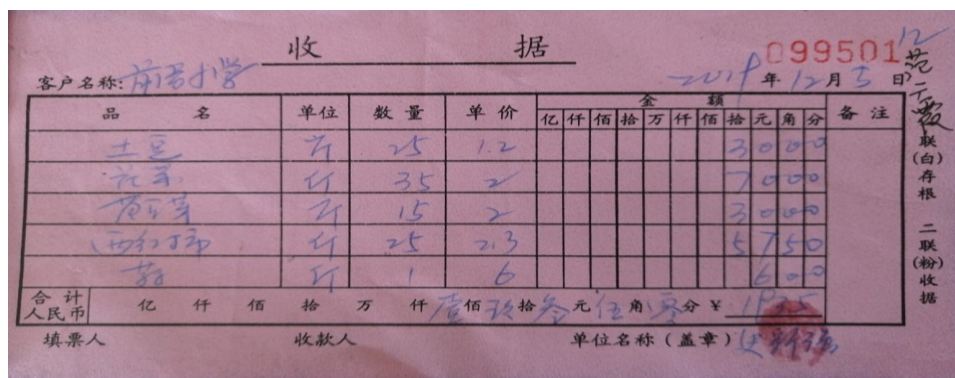 收 据
099501
12
客户名称: 小学 2019年12月5日
品 名 单位 数量 单价 金额 备注
亿 仟 佰 拾 万 仟 佰 拾 元 角 分
土豆 斤 25 1.2 3000
花菜 斤 35 2 7000
斤 15 2 3000
西红市 斤 25 2.3 5750
斤 1 6 600
合计人民币 亿 仟 佰 拾 万 仟 壹佰玖拾叁元伍角零分 ¥193.5
填票人 收款人 单位名称(盖章)
一联(白)存根 二联(粉)收据